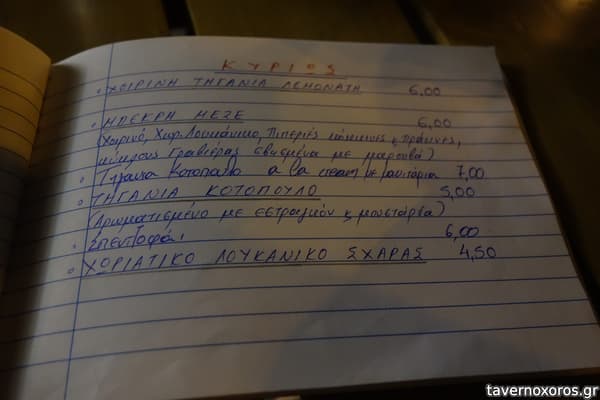 ΚΥΡΙΩΣ
ΧΟΙΡΙΝΗ ΤΗΓΑΝΙΑ ΛΕΜΟΝΑΤΗ 6,00
ΜΠΕΚΡΗ ΜΕΖΕ 6,00
(Χοιρινό, Χωρ. Λουκάνικο, Πιπεριές κόκκινες & πράσινες,
κύβους Γραβιέρας σβησμένα με μαρουβά)
Τηγανιά Κοτόπουλο α λα cream με μανιτάρια 7,00
ΤΗΓΑΝΙΑ ΚΟΤΟΠΟΥΛΟ 5,00
(Αρωματισμένο με εστραγκόν & μουστάρδα)
Σπεντζοφάι 6,00
ΧΩΡΙΑΤΙΚΟ ΛΟΥΚΑΝΙΚΟ ΣΧΑΡΑΣ 4,50
tavernoxoros.gr